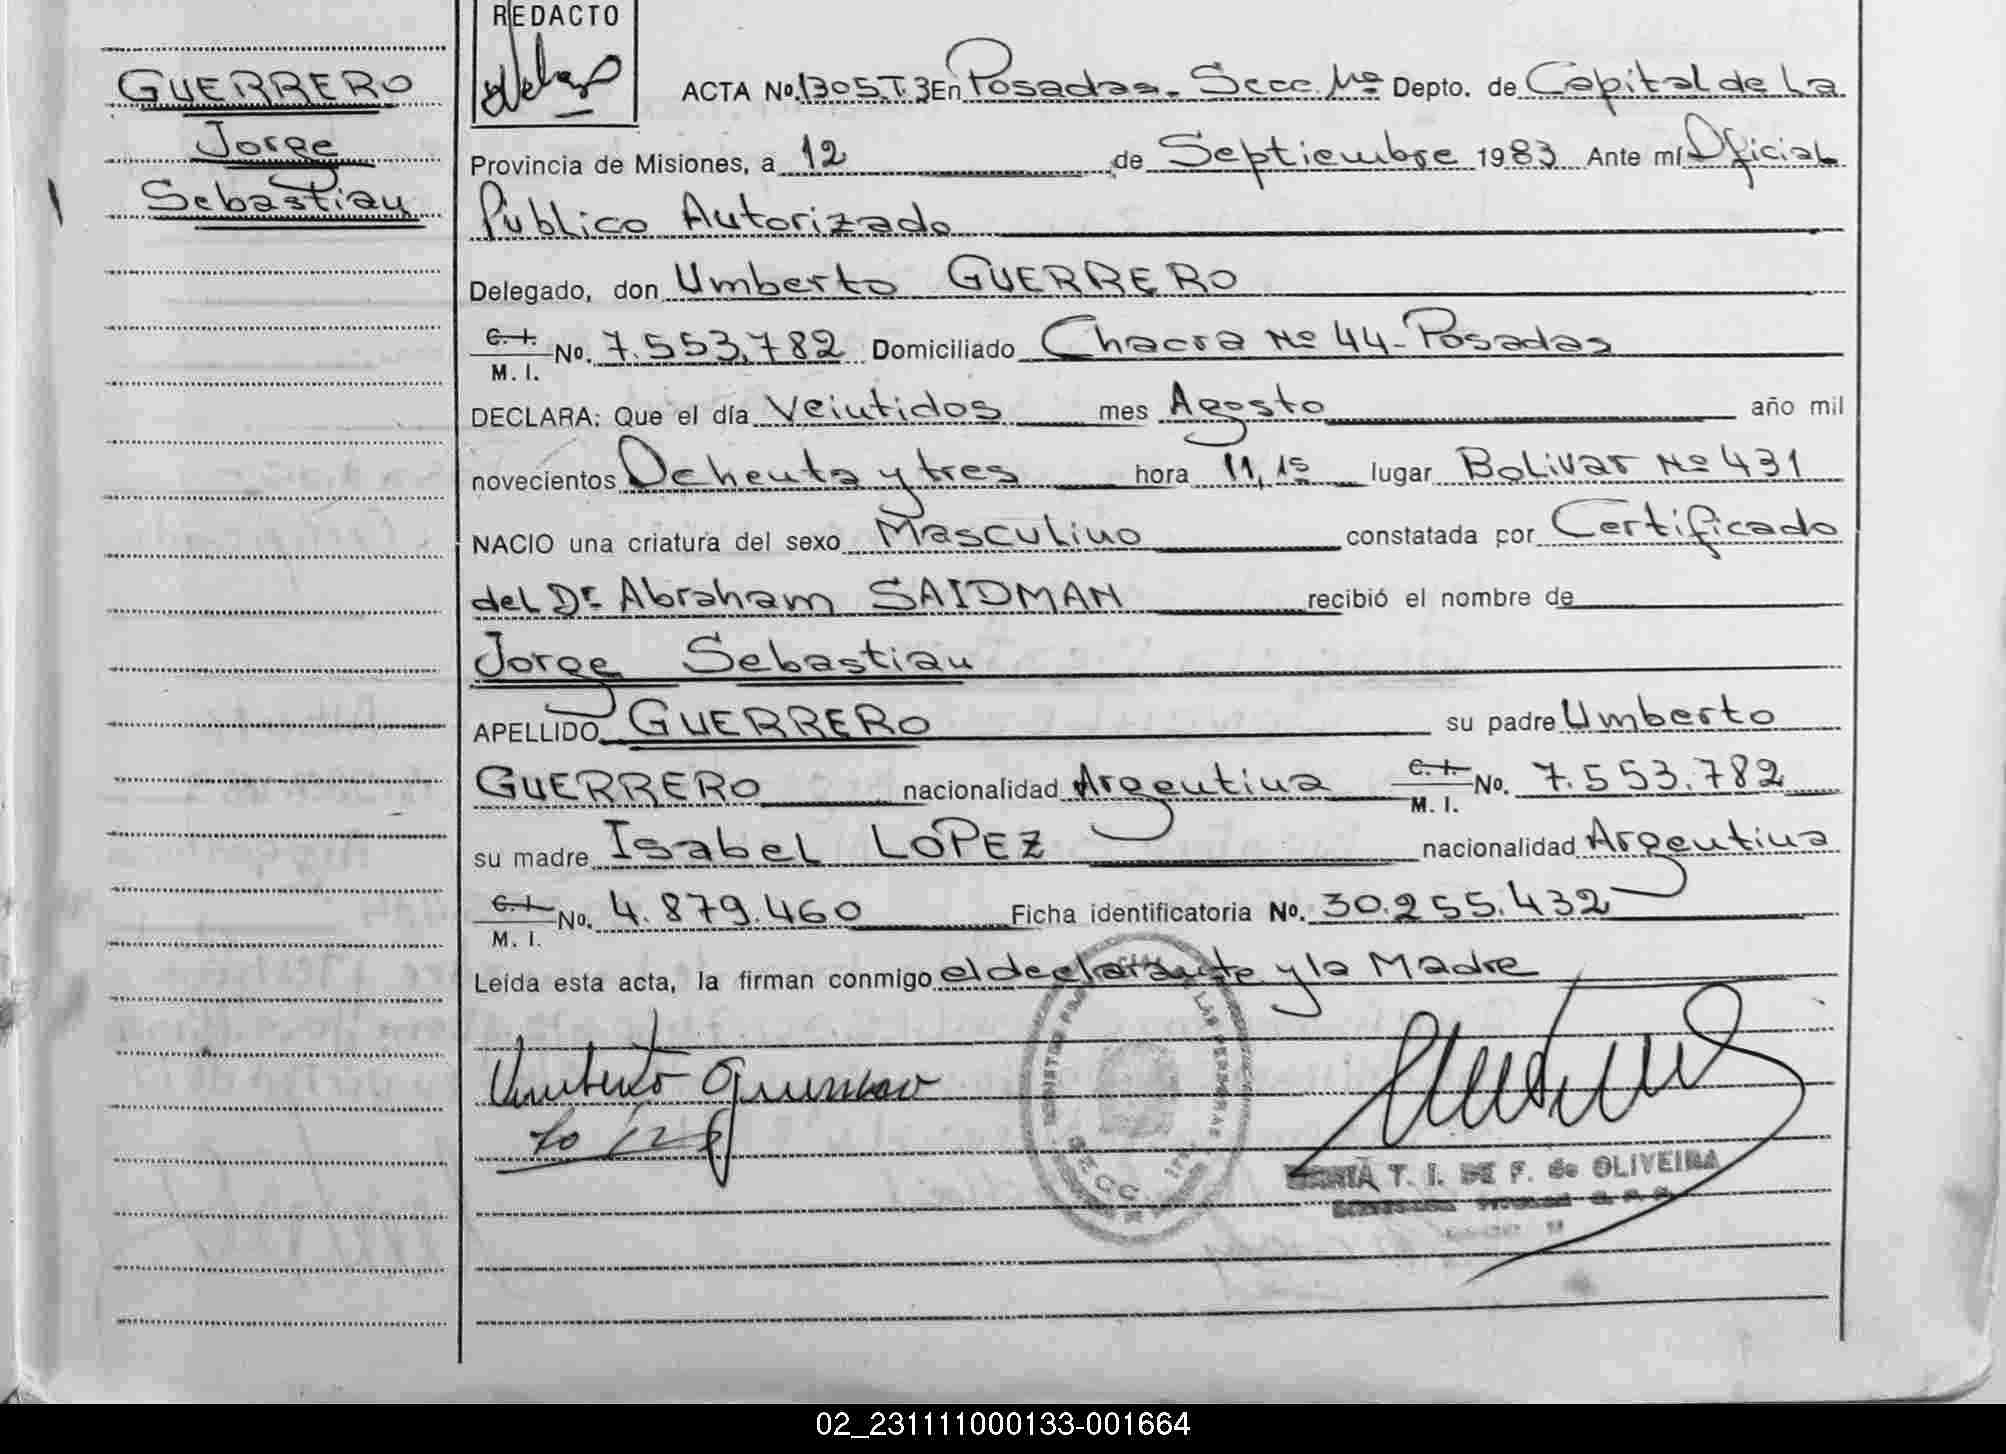 REDACTO
GUERRERO
Jorge
Sebastian
ACTA No. 1305.T.3 En Posadas. Secc. Mº Depto. de Capital de La
Provincia de Misiones, a 12 de Septiembre 1983 Ante mí Oficial
Público Autorizado
Delegado, don Umberto GUERRERO
C. I. No. 7.553.782 Domiciliado Chacra Nº 44 - Posadas
M. I.
DECLARA: Que el día Veintidos mes Agosto año mil
novecientos Ochenta y tres hora 11,15 lugar Bolivar Nº 431
NACIO una criatura del sexo Masculino constatada por Certificado
del Dr. Abraham SAIDMAN recibió el nombre de
Jorge Sebastian
APELLIDO GUERRERO su padre Umberto
GUERRERO nacionalidad Argentina C. I. No. 7.553.782
M. I.
su madre Isabel LOPEZ nacionalidad Argentina
C. I. No. 4.879.460 Ficha identificatoria No. 30.255.432
M. I.
Leída esta acta, la firman conmigo el declarante y la Madre
Umberto Guerrero
DE LAS PERSONAS
SECC
T. I. DE F. de OLIVEIRA
02_231111000133-001664